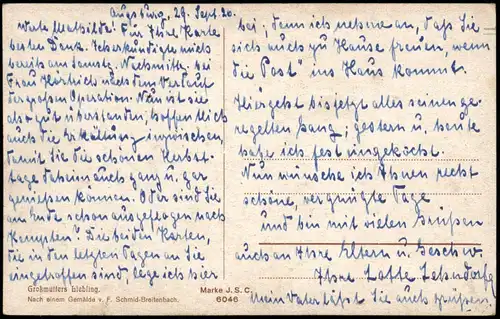 Augsburg, 29. Sept. 20.
Werte Mathilde. Für Ihre Karte
besten Dank. Ich erkundigte mich
bereits am Samst. Nachmitt. bei
Frau nach dem Verlauf
der großen Operation. Nun ist sie
also gut überstanden, hoffentlich
auch die Erkältung inzwischen,
damit Sie die schönen Herbst-
tage daheim auch ganz u. gar
genießen können. Oder sind Sie
am Ende schon ausgeflogen nach
Kempten? Die beiden Karten,
die in den letzten Tagen an Sie
eingetroffen sind, lege ich hier
Großmutters Liebling.
Nach einem Gemälde v. F. Schmid-Breitenbach.
Marke J. S. C.
6046
bei; denn ich nehme an, daß Sie
sich auch zu Hause freuen, wenn
die "Post" ins Haus kommt.
Hier geht bis jetzt alles seinen ge-
regelten Gang; gestern u. heute
habe ich fest eingekocht.
Nun wünsche ich Ihnen recht
schöne, vergnügte Tage
und bin mit vielen Grüßen
auch an Ihre Eltern u. Geschw.
Ihre Lotte
Mein Vater läßt Sie auch grüßen!